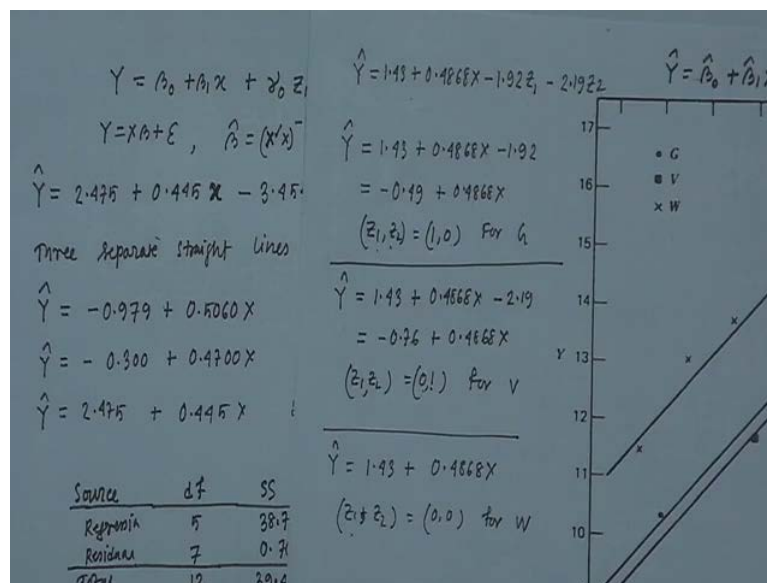 Y = β₀ + β₁x + γ₀ z₁
Y = Xβ + ε , β̂ = (X'X)⁻
Ŷ = 2.475 + 0.445 x - 3.45
Three separate straight lines
Ŷ = -0.979 + 0.5060 X
Ŷ = - 0.300 + 0.4700 X
Ŷ = 2.475 + 0.445 X
Source df SS
Regression 5 38.7
Residual 7 0.7
Total 12 39.4
Ŷ = 1.43 + 0.4868X - 1.92Z₁ - 2.19Z₂
Ŷ = 1.43 + 0.4868X - 1.92
= -0.49 + 0.4868X
(Z₁, Z₂) = (1,0) For G
Ŷ = 1.43 + 0.4868X - 2.19
= -0.76 + 0.4868X
(Z₁, Z₂) = (0,1) for V
Ŷ = 1.43 + 0.4868X
(Z₁, Z₂) = (0,0) for W
Ŷ = β̂₀ + β̂₁
17
G
V
16
W
15
14
Y 13
12
11
10